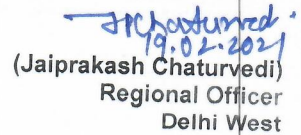 JPChaturvedi
19.02.2021
(Jaiprakash Chaturvedi)
Regional Officer
Delhi West